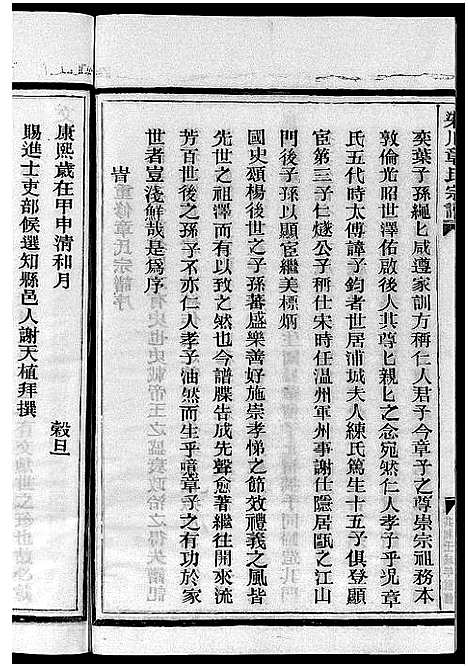 章氏宗譜
奕葉子孫繩匕咸遵家訓方稱仁人君子今章子之尊崇宗祖務本
敦倫光昭世澤佑啟後人其尊匕親匕之念宛然仁人孝子乎况章
氏五代時太傅諱子鈞者世居浦城夫人練氏篤生十五子俱登顯
宦第三子仁燧公子稱仕宋時任温州軍州事謝仕隱居甌之江山
門後子孫以顯宦繼美標炳
國史頌楊後世之子孫蕃盛樂善好施崇孝悌之節效禮義之風皆
先世之祖澤而有以致之然也今譜牒告成先聲愈著繼往開來流
芳百世後之孫子不亦仁人孝子油然而生乎噫章子之有功於家
世者豈淺鮮哉是爲序
旹
康熙歲在甲申清和月 穀旦
賜進士吏部候選知縣邑人謝天植拜撰